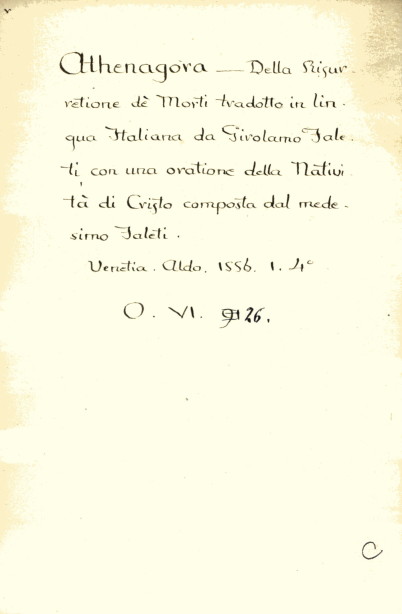 Athenagora — Della Risur-
retione dè Morti tradotto in lin-
gua Italiana da Girolamo Fale-
ti con una oratione della Nativi
tà di Cristo composta dal mede-
simo Faleti.
Venetia. Aldo. 1556. 1. 4°
O. VI. 26.
C